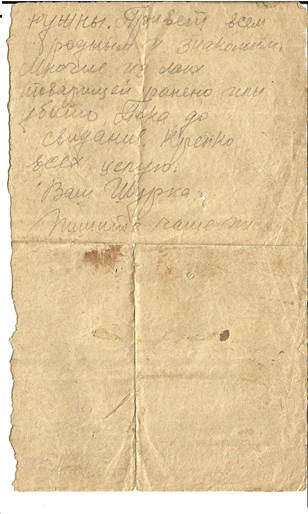 нужны. Привет всем
родным и знакомым.
Многие из моих
товарищей ранено или
убито. Пока до
свидания. Крепко
всех целую.
Ваш Шурка.
Пишите чаще